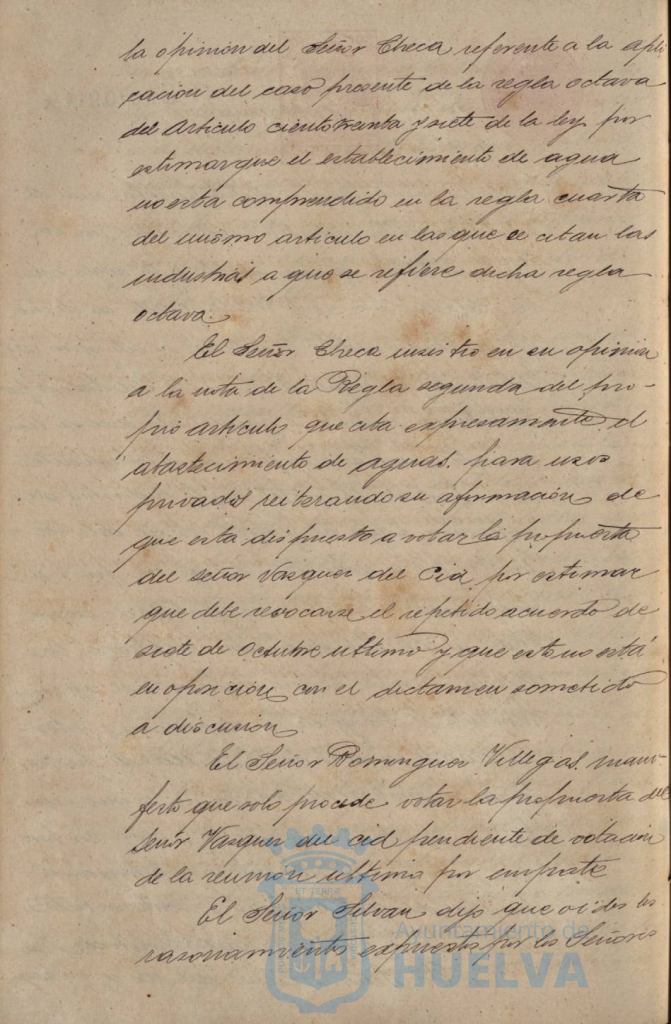 la opinión del Señor Checa referente a la apli
cación del caso presente de la regla octava
del Artículo ciento treinta y siete de la ley por
estimar que el establecimiento de agua
no esta comprendido en la regla cuarta
del mismo artículo en las que se citan las
industrias a que se refiere dicha regla
octava.
El Señor Checa insistio en su opinion
a la vista de la Regla segunda del pro-
pio artículo que cita expresamente el
abastecimiento de aguas para usos
privados reiterando su afirmación de
que está dispuesto a votar la propuesta
del señor Vazquez del Cid por estimar
que debe revocarse el repetido acuerdo de
siete de Octubre ultimo y que esto no está
en oposición con el dictamen sometido
a discusión
El Señor Dominguez Villegas mani-
festo que solo procede votar la propuesta del
Señor Vazquez del Cid pendiente de votación
de la reunión ultima por empate
El Señor Silvan dijo que oidos los
razonamientos expuestos por los Señores
ET TERRÆ
Ayuntamiento de
HUELVA